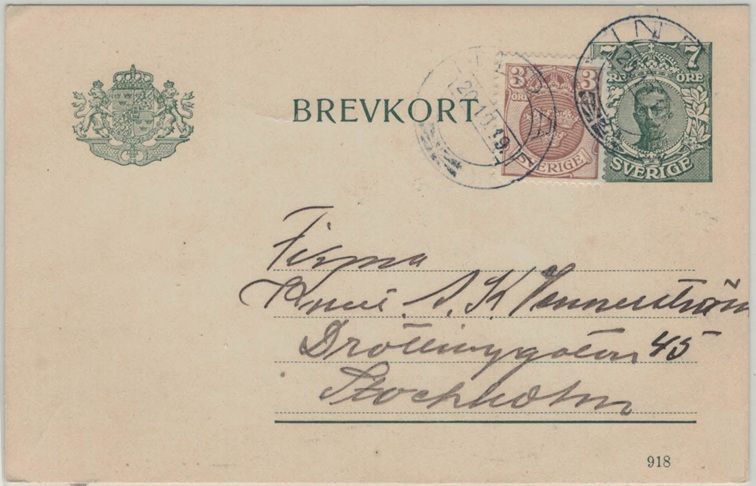 BREVKORT
3 3
ÖRE
SVERIGE
7
ÖRE ÖRE
SVERIGE
26.10.19.
Firma
A. K. Wennerström
Drottninggatan 45
Stockholm
918